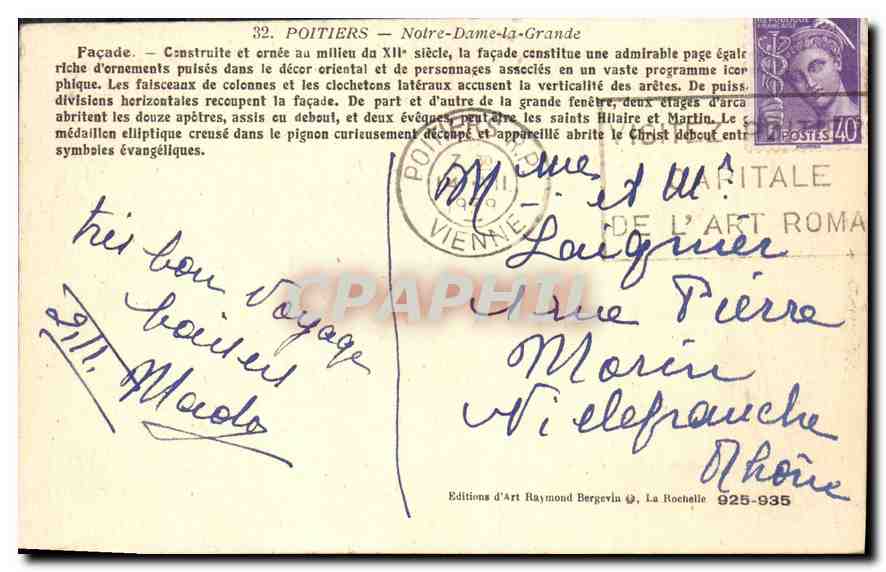 32. POITIERS — Notre-Dame-la-Grande
Façade. — Construite et ornée au milieu du XIIe siècle, la façade constitue une admirable page égale
riche d'ornements puisés dans le décor oriental et de personnages associés en un vaste programme icon
phique. Les faisceaux de colonnes et les clochetons latéraux accusent la verticalité des arêtes. De puiss
divisions horizontales recoupent la façade. De part et d'autre de la grande fenêtre, deux étages d'arca
abritent les douze apôtres, assis ou debout, et deux évêques, peut être les saints Hilaire et Martin. Le s
médaillon elliptique creusé dans le pignon curieusement découpé et appareillé abrite le Christ debout entr
symboles évangéliques.
POSTES 40c
POITIERS R.P.
VIENNE
CAPITALE
DE L'ART ROMA
Mmes et Mr
Laignier
rue Pierre
Morin
Villefranche
Rhône
très bon voyage
baisers
Mado
2.11.
CPAPHIL
Editions d'Art Raymond Bergevin, La Rochelle 925-935